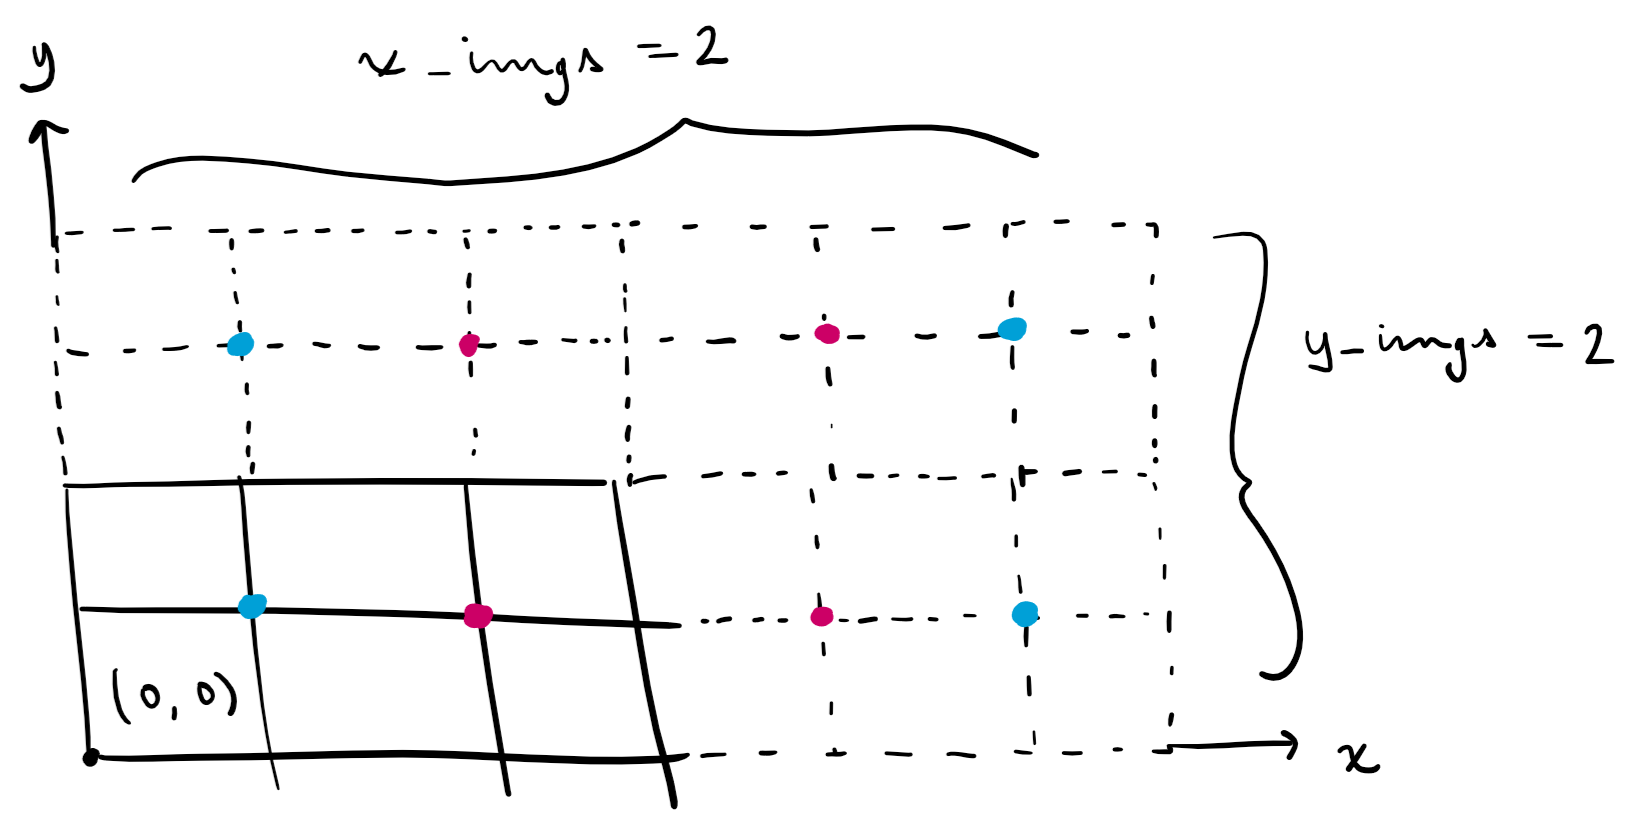 y
x_imgs = 2
y_imgs = 2
(0,0)
x